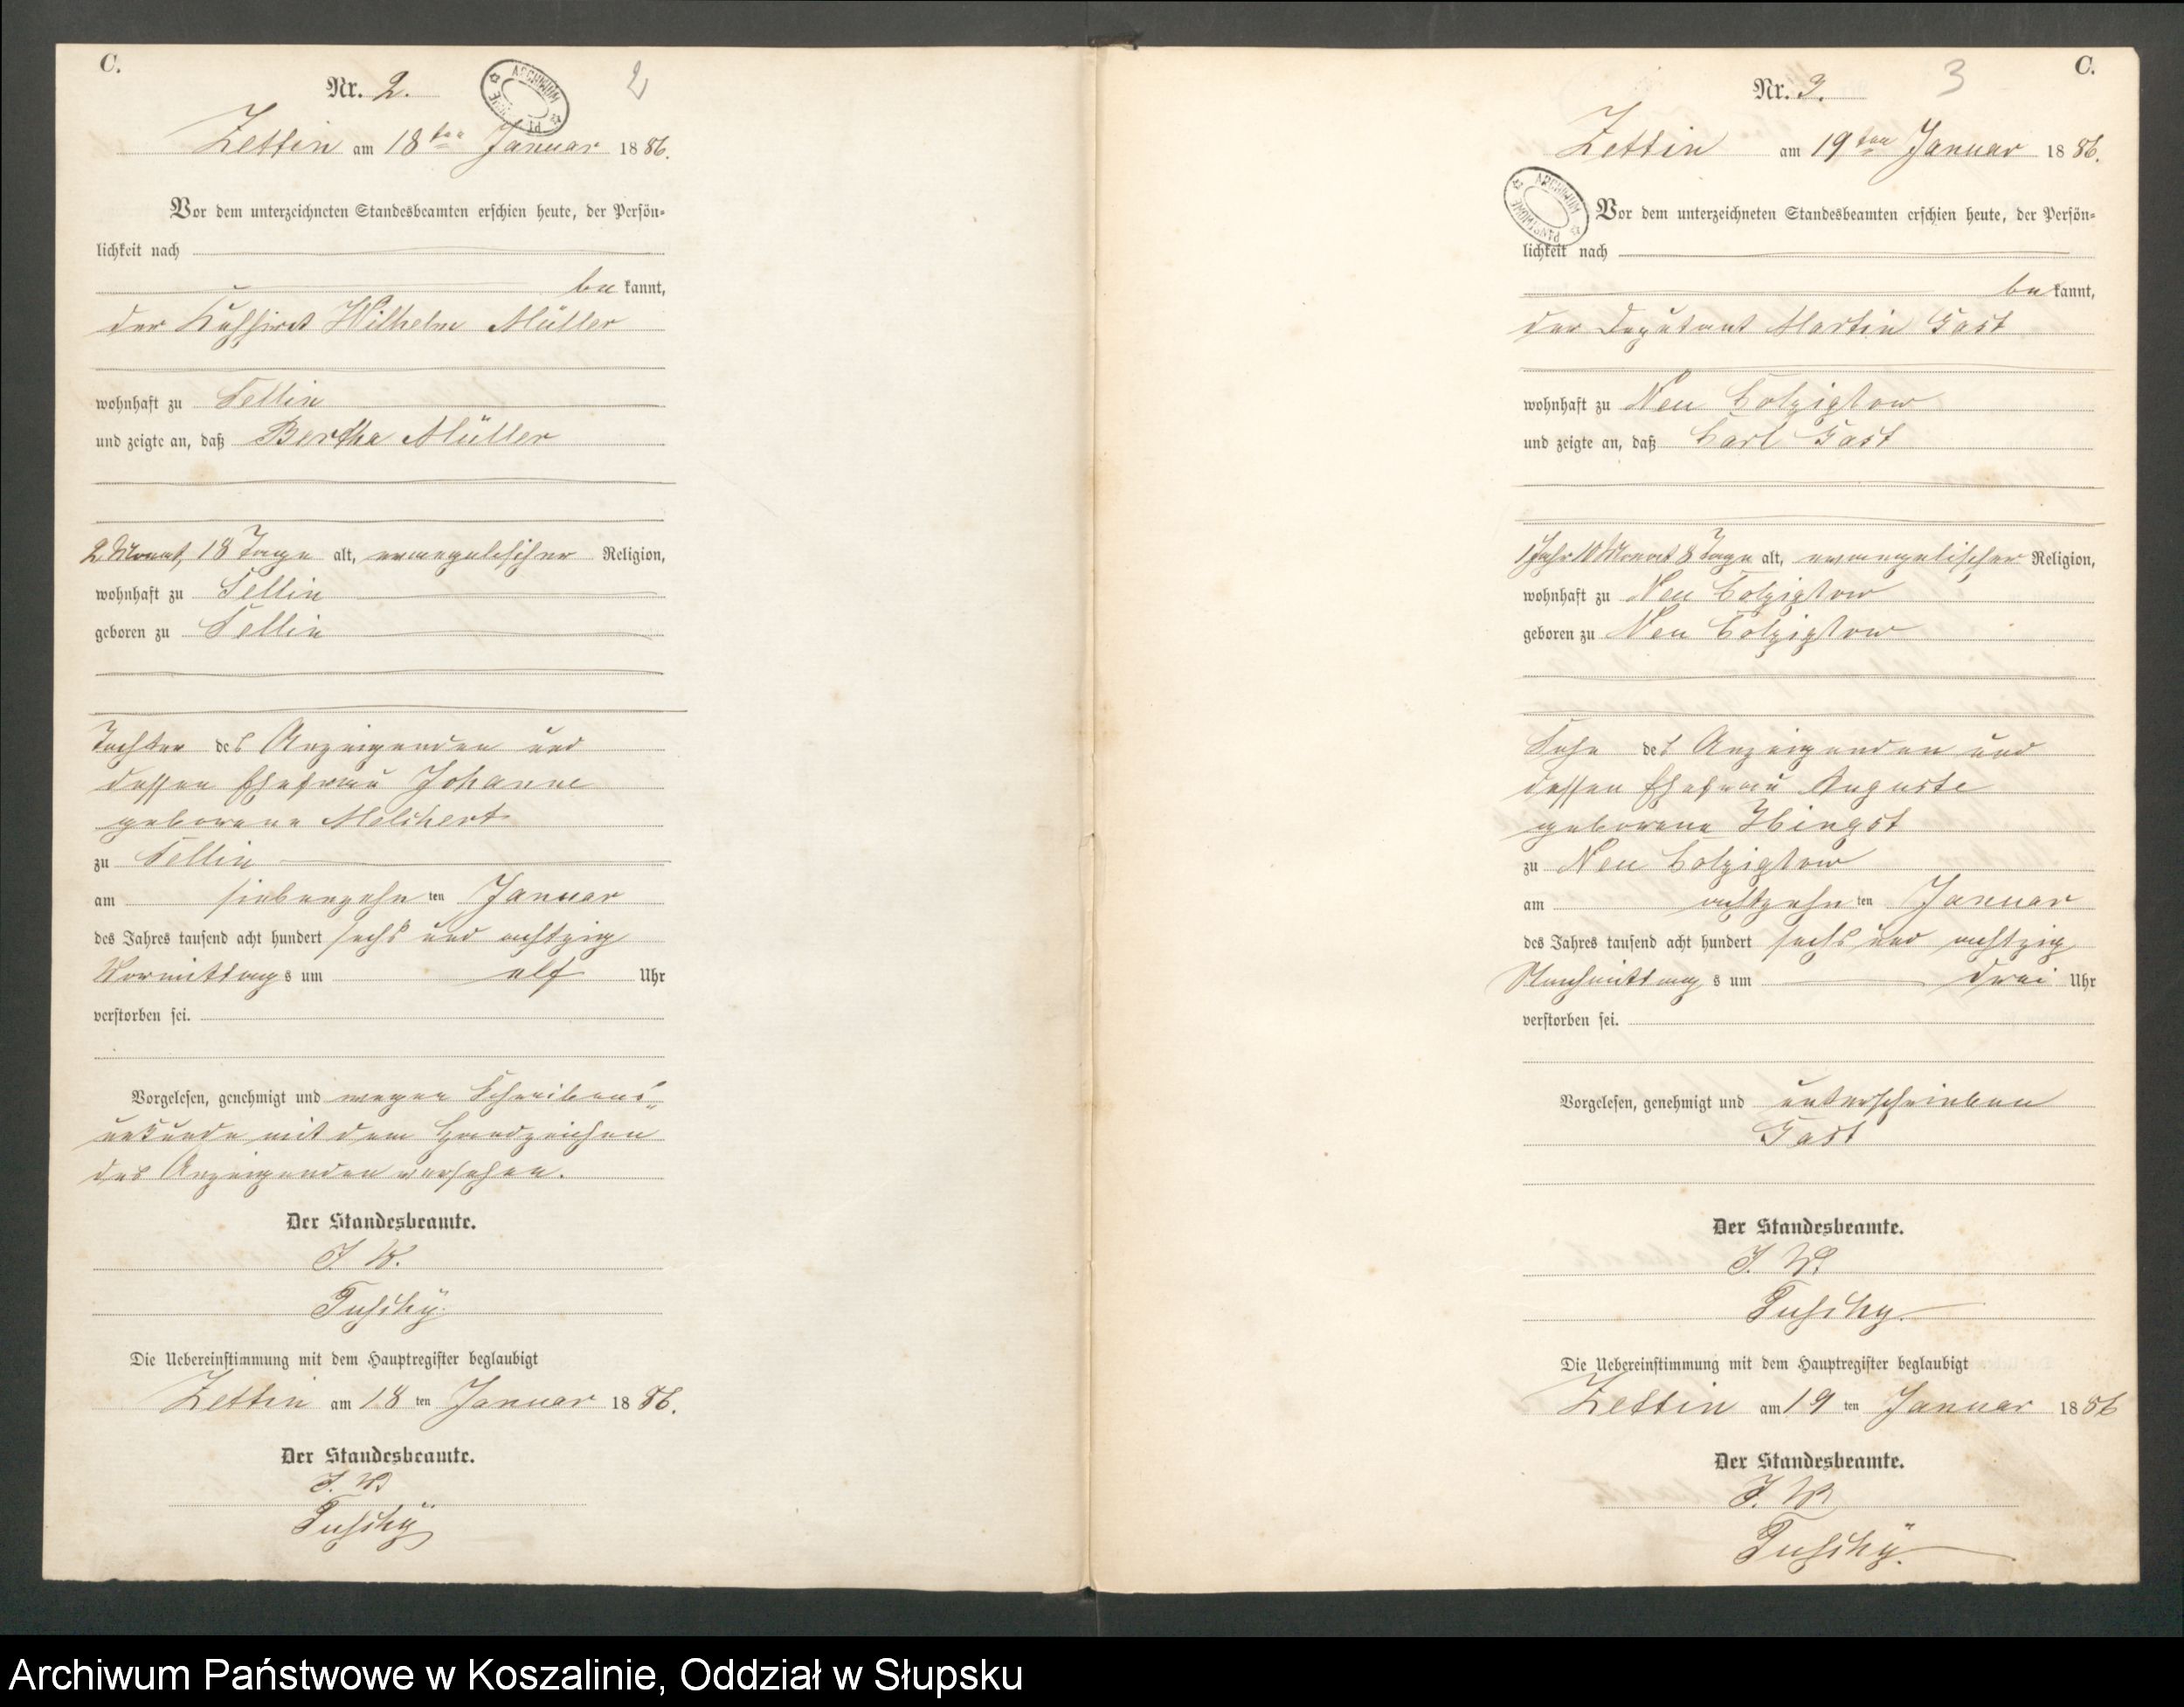 C.
Nr. 2.
2
Zettin am 18ten Januar 1886.
Vor dem unterzeichneten Standesbeamten erschien heute, der Persön-
lichkeit nach
be kannt,
der Kuhhirt Wilhelm Müller
wohnhaft zu Sellin
und zeigte an, daß Bertha Müller
2 Monat, 18 Tage alt, evangelischer Religion,
wohnhaft zu Sellin
geboren zu Sellin
Tochter des Anzeigenden und
dessen Ehefrau Johanne
geborene Melchert
zu Sellin
am siebenzehn ten Januar
des Jahres tausend acht hundert sechs und achtzig
Vormittags um elf Uhr
verstorben sei.
Vorgelesen, genehmigt und wegen Schreibens-
unkunde mit dem Handzeichen
des Anzeigenden versehen.
Der Standesbeamte.
J. V.
Die Uebereinstimmung mit dem Hauptregister beglaubigt
Zettin am 18 ten Januar 1886.
Der Standesbeamte.
J. V.
C.
Nr. 3.
3
Zettin am 19ten Januar 1886.
ARCHIWUM PAŃSTWOWE
Vor dem unterzeichneten Standesbeamten erschien heute, der Persön-
lichkeit nach
be kannt,
der Deputant Martin Gast
wohnhaft zu Neu Colziglow
und zeigte an, daß Carl Gast
1 Jahr 10 Monat 8 Tage alt, evangelischer Religion,
wohnhaft zu Neu Colziglow
geboren zu Neu Colziglow
Sohn des Anzeigenden und
dessen Ehefrau Auguste
geborene Hingst
zu Neu Colziglow
am achtzehn ten Januar
des Jahres tausend acht hundert sechs und achtzig
Nachmittags um drei Uhr
verstorben sei.
Vorgelesen, genehmigt und unterschrieben
Gast
Der Standesbeamte.
J. V.
Die Uebereinstimmung mit dem Hauptregister beglaubigt
Zettin am 19 ten Januar 1886
Der Standesbeamte.
J. V.
Archiwum Państwowe w Koszalinie, Oddział w Słupsku